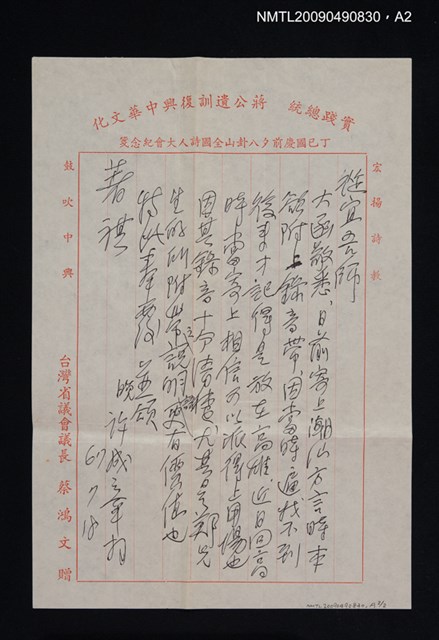 NMTL20090490830, A2
實踐總統 蔣公遺訓復興中華文化
丁巳國慶前夕八卦山全國詩人大會紀念箋
宏揚詩教
挺宜吾師
大函敬悉,日前寄上潮汕方言時本
欲附上錄音帶,因當時遍找不到
後來才記得是放在高雄近日回高
時才寄上相信可以派得上用場也
因其錄音十分清楚尤其是鄭兄
生的所附帶之說明更有價值也
特此奉覆 並頌
著祺
晚 許成章
67.7.18
鼓吹中興
台灣省議會議長 蔡鴻文 贈